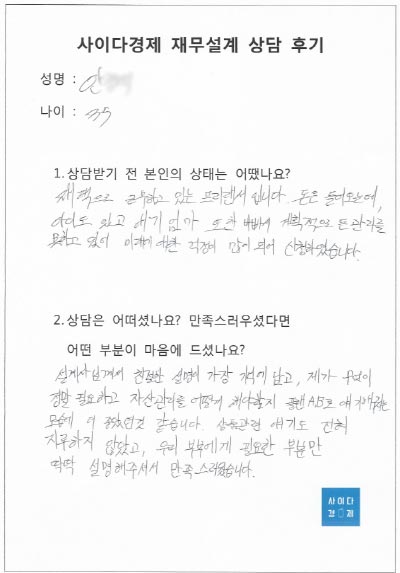 사이다경제 재무설계 상담 후기
성명 : 안
나이 : 35
1.상담받기 전 본인의 상태는 어땠나요?
재택으로 근무하고 있는 프리랜서 입니다. 돈은 들어오는데,
아이도 있고 애기 엄마 또한 바빠서 계획적으로 돈 관리를
못하고 있어 미래에 대한 걱정이 많이 되어 신청하였습니다.
2.상담은 어떠셨나요? 만족스러우셨다면
어떤 부분이 마음에 드셨나요?
설계사님께서 친절한 설명이 가장 기억에 남고, 제가 무엇이
정말 필요하고 자산관리를 어떻게 해야할지 플랜A,B로 얘기해주는
모습에 더 좋았던것 같습니다. 상품관련 얘기도 전혀
지루하지 않았고, 우리 부부에게 필요한 부분만
딱딱 설명해주셔서 만족스러웠습니다.
사이다
경제